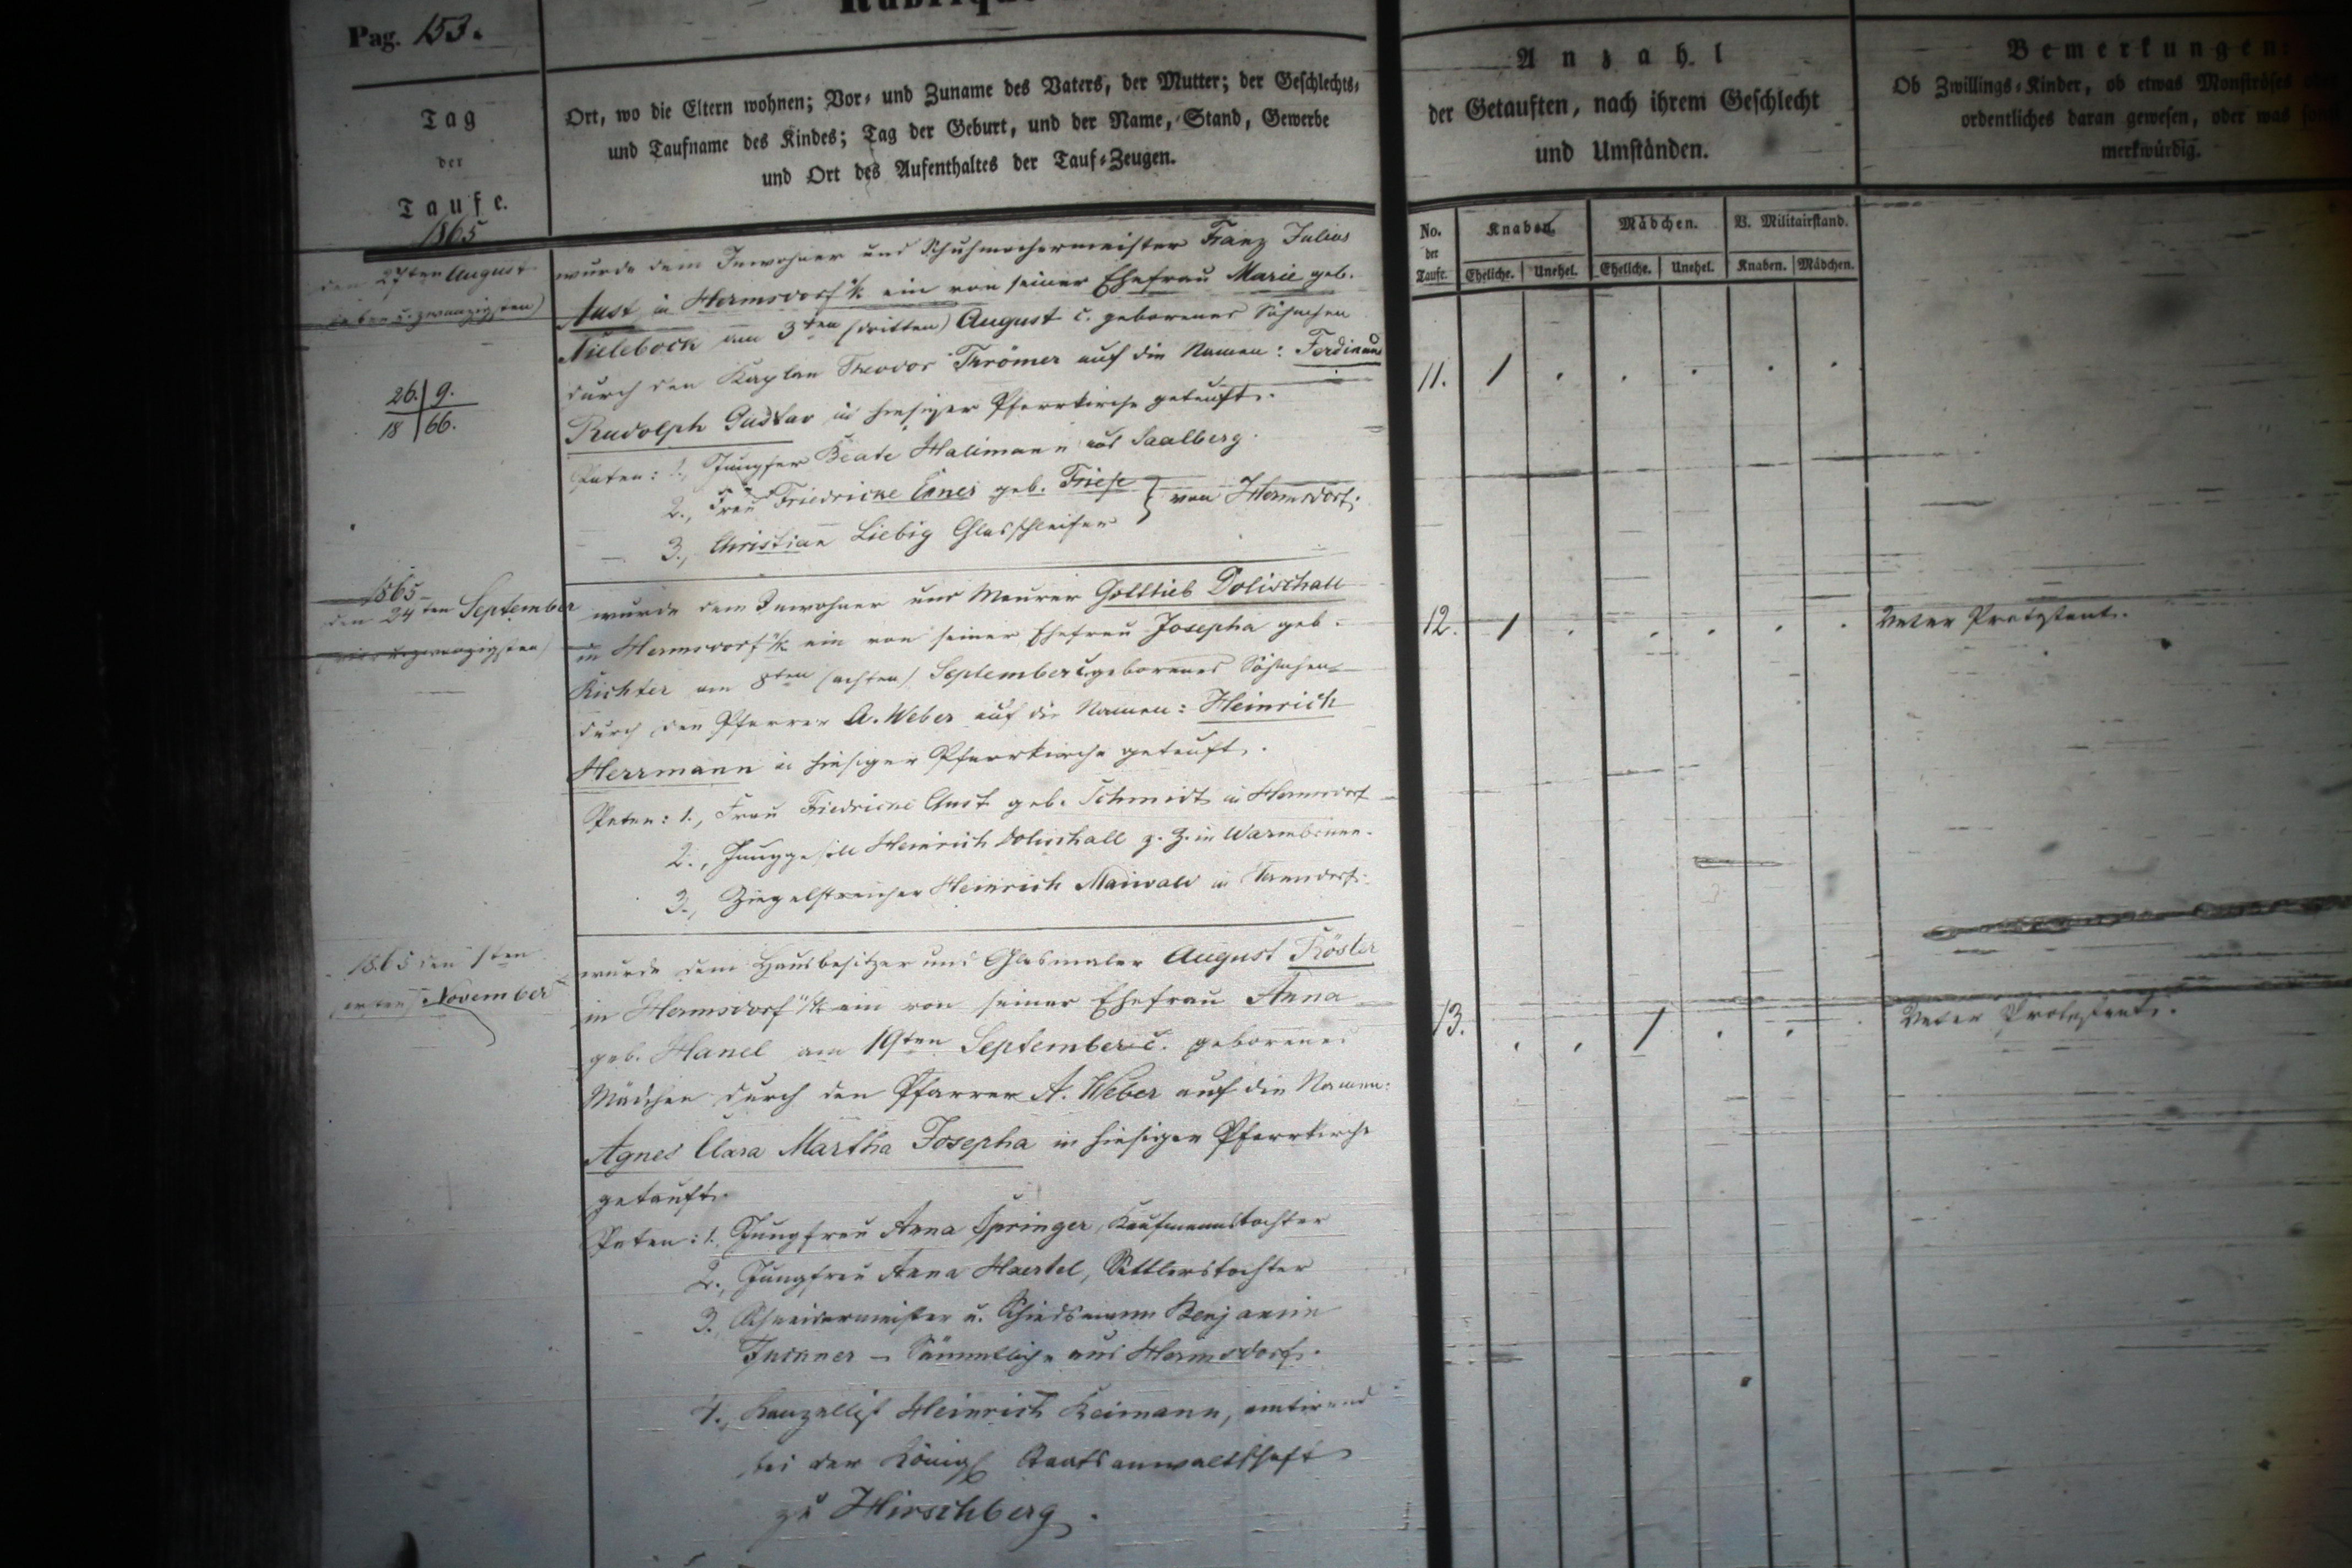 Pag. 153.
Tag
der
Taufe.
1865
Ort, wo die Eltern wohnen; Vor- und Zuname des Vaters, der Mutter; der Geschlechts-
und Taufname des Kindes; Tag der Geburt, und der Name, Stand, Gewerbe
und Ort des Aufenthaltes der Tauf-Zeugen.
Anzahl
der Getauften, nach ihrem Geschlecht
und Umständen.
Bemerkungen:
Ob Zwillings-Kinder, ob etwas Monströses
ordentliches daran gewesen, oder was
merkwürdig.
No. der Taufe.
Knaben. Mädchen. B. Militairstand.
Eheliche. Unehel. Eheliche. Unehel. Knaben. Mädchen.
den 27ten August
sieben u. zwanzigsten)
26. 9.
18 66.
wurde dem Inwohner und Schuhmachermeister Franz Julius
Aust in Hermsdorf u/k ein von seiner Ehefrau Marie geb.
Nielebock am 3ten (dritten) August c. geborenes Söhnchen
durch den Kaplan Theodor Krömer auf die Namen: Ferdinand
Rudolph Gustav in hiesiger Pfarrkirche getauft.
Paten: 1., Jungfer Beate Hallmann aus Saalberg.
2., Frau Friedricke geb. Friese
3., Christian Liebig Glasschleifer } von Hermsdorf.
11. 1 . . . . .
1865
den 24ten September
(vier u. zwanzigsten)
wurde dem Inwohner und Maurer Gottlieb Dolischall
in Hermsdorf u/k ein von seiner Ehefrau Josepha geb.
Richter am 8ten (achten) September c. geborenes Söhnchen
durch den Pfarrer A. Weber auf die Namen: Heinrich
Herrmann in hiesiger Pfarrkirche getauft.
Paten: 1., Frau Friedricke Aust geb. Schmidt in Hermsdorf
2., Junggesell Heinrich Dolischall z. Z. in Warmbrunn.
3., Ziegelstreicher Heinrich Maiwald in
12. 1 . . . . . Vater Protestant.
1865 den 1ten
(ersten) November
wurde dem Hausbesitzer und Glasmaler August Rösler
in Hermsdorf u/k ein von seiner Ehefrau Anna
geb. Hanel am 19ten September c. geborenes
Mädchen durch den Pfarrer A. Weber auf die Namen:
Agnes Clara Martha Josepha in hiesiger Pfarrkirche
getauft.
Paten: 1. Jungfrau Anna Springer, Kaufmannstochter
2., Jungfrau Anna Haertel, Sattlerstochter
3. Schneidermeister u. Schiedsmann Benjamin
– Sämmtlich aus Hermsdorf.
4., Kanzellist Heinrich Reimann, amtirend
bei der Königl Staatsanwaltschaft
zu Hirschberg.
13. . . 1 . . . Vater Protestant.